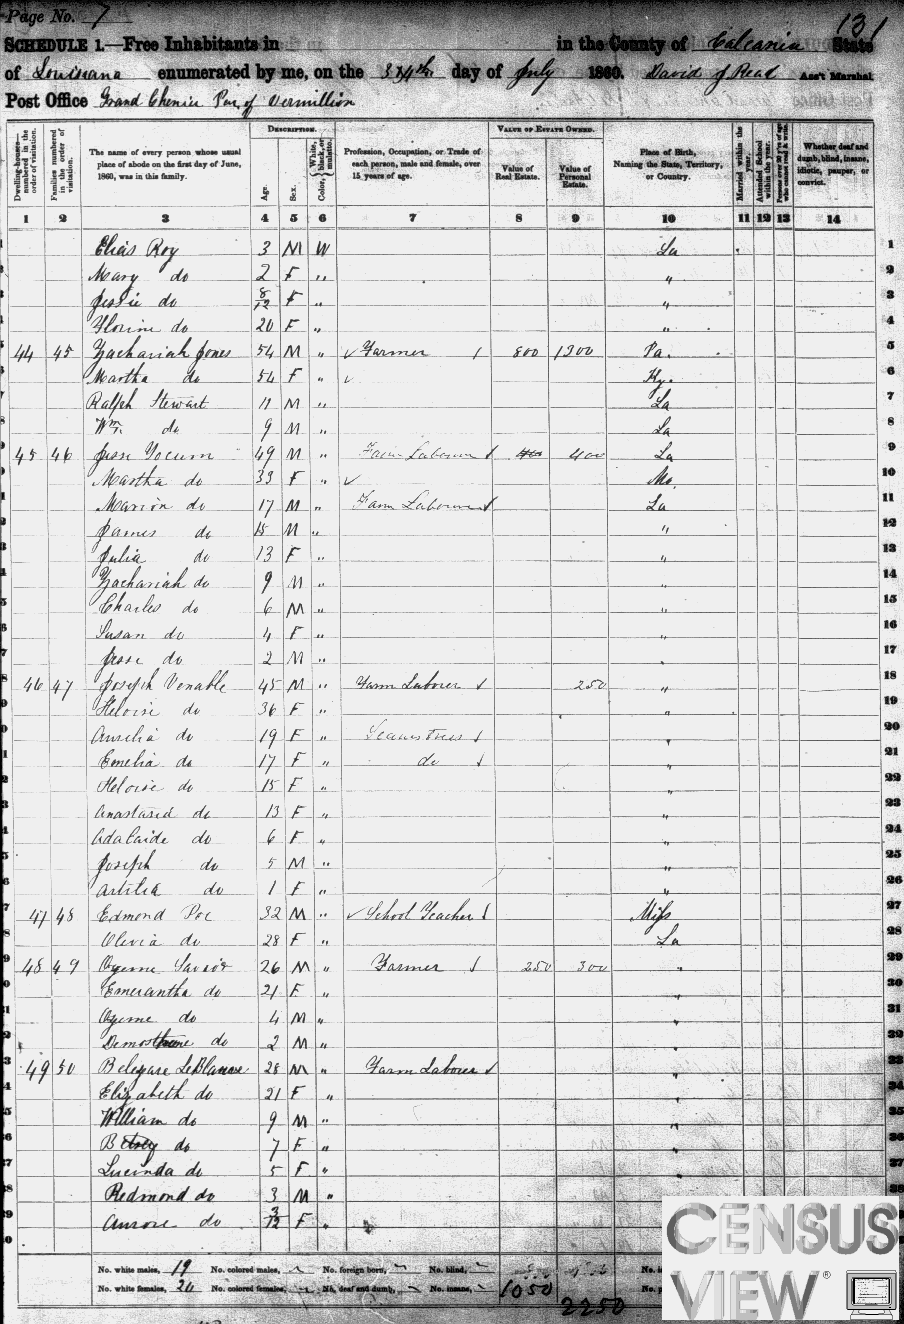 Page No. 7
131
SCHEDULE 1.—Free Inhabitants in in the County of Calcasieu State
of Louisiana enumerated by me, on the 3 & 4th day of July 1860. David J Read Ass't Marshal.
Post Office Grand Chenier Par. of Vermillion
Dwelling-houses—numbered in the order of visitation.
Families numbered in the order of visitation.
The name of every person whose usual place of abode on the first day of June, 1860, was in this family.
DESCRIPTION.
Age.
Sex.
Color, White, black, or mulatto.
Profession, Occupation, or Trade of each person, male and female, over 15 years of age.
VALUE OF ESTATE OWNED.
Value of Real Estate.
Value of Personal Estate.
Place of Birth, Naming the State, Territory, or Country.
Married within the year.
Attended School within the year.
Persons over 20 y'rs of age who cannot read & write.
Whether deaf and dumb, blind, insane, idiotic, pauper, or convict.
1 2 3 4 5 6 7 8 9 10 11 12 13 14
Elias Roy 3 M W La 1
Mary do 2 F " " 2
Jessie do 8/12 F " " 3
Florine do 20 F " " 4
44 45 Zachariah Jones 54 M " Farmer 1 800 1300 Pa. 5
Martha do 54 F " Ky. 6
Ralph Stewart 11 M " La 7
Wm. do 9 M " La 8
45 46 Jesse Yocum 49 M " Farm Labourer 400 La 9
Martha do 33 F " Mo. 10
Marion do 17 M " Farm Labourer La 11
James do 15 M " " 12
Julia do 13 F " " 13
Zachariah do 9 M " " 14
Charles do 6 M " " 15
Susan do 4 F " " 16
Jesse do 2 M " " 17
46 47 Joseph Venable 45 M " Farm Laborer 250 " 18
Heloise do 36 F " " 19
Aurelia do 19 F " Seamstress " 20
Emelia do 17 F " do " 21
Heloise do 15 F " " 22
Anastasia do 13 F " " 23
Adalaide do 6 F " " 24
Joseph do 5 M " " 25
Artilia do 1 F " " 26
47 48 Edmond Poe 32 M " School Teacher Miss 27
Olevia do 28 F " La 28
48 49 Ozeme Savoie 26 M " Farmer 250 300 " 29
Emerantha do 21 F " " 30
Ozeme do 4 M " " 31
Demosthene do 2 M " " 32
49 50 Belezare LeBlanc 28 M " Farm Laborer " 33
Elizabeth do 21 F " " 34
William do 9 M " " 35
Betsey do 7 F " " 36
Lucinda do 5 F " " 37
Redmond do 3 M " 38
Aurore do 3/12 F " 39
No. white males, 19 No. colored males, No. foreign born, No. blind,
No. white females, 20 No. colored females, No. deaf and dumb, No. insane, 1050 2250
CENSUS
VIEW®